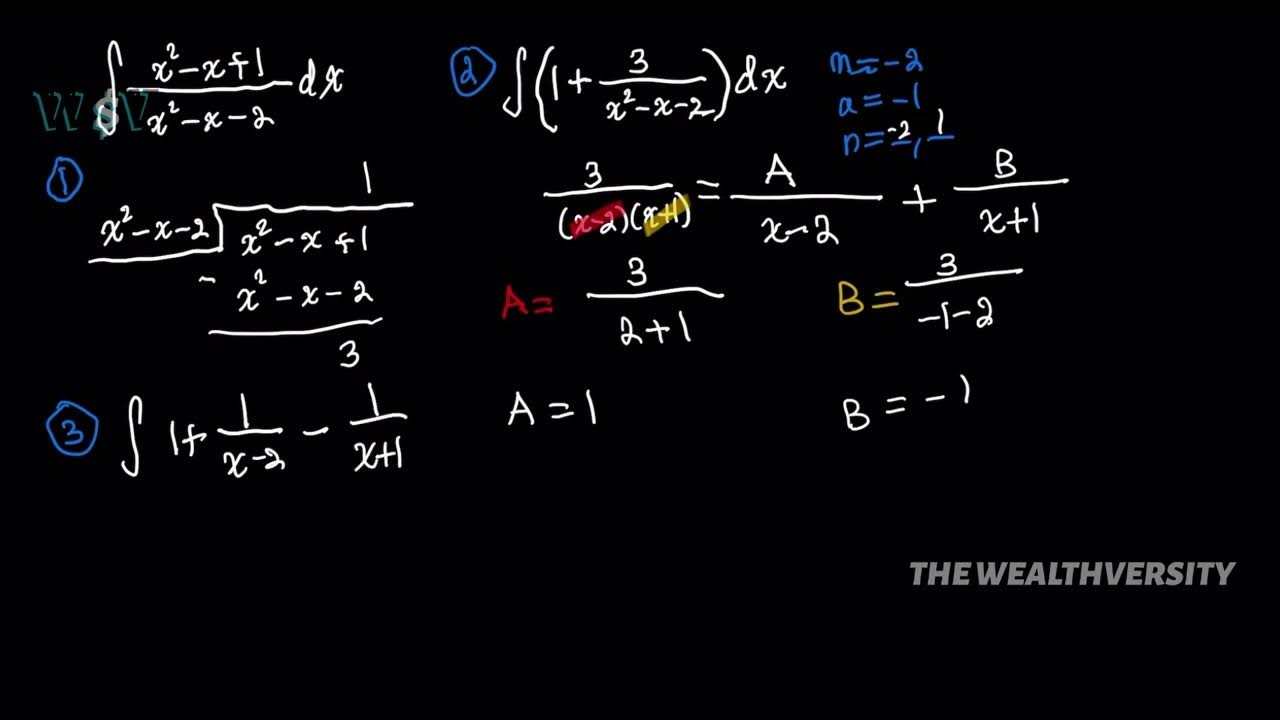 ∫ (x² - x + 1)/(x² - x - 2) dx
W$V
①
1
x² - x - 2 ) x² - x + 1
- x² - x - 2
3
② ∫ (1 + 3/(x² - x - 2)) dx
m = -2
a = -1
n = -2, 1
3/((x-2)(x+1)) = A/(x-2) + B/(x+1)
A = 3/(2+1)
B = 3/(-1-2)
A = 1
B = -1
③ ∫ 1 + 1/(x-2) - 1/(x+1)
THE WEALTHVERSITY